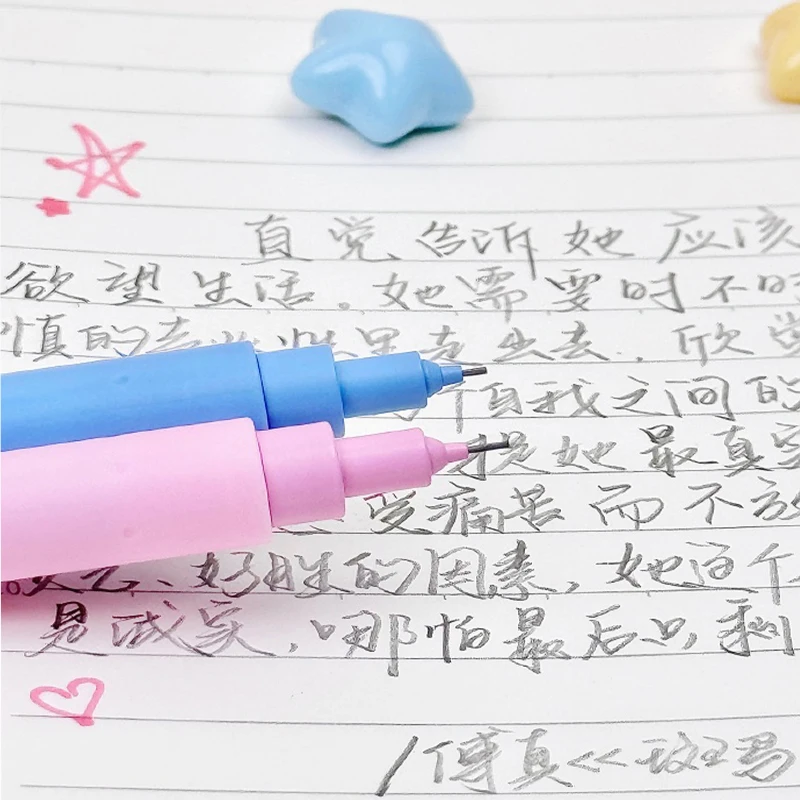 直觉告诉她应该
欲望生活。她需要时不时
慎的去 出去,欣赏
自我之间的
她最真实
受痛苦而不放
、好胜的因素,她这个
是诚实,哪怕最后只剩
/傅真<<斑马